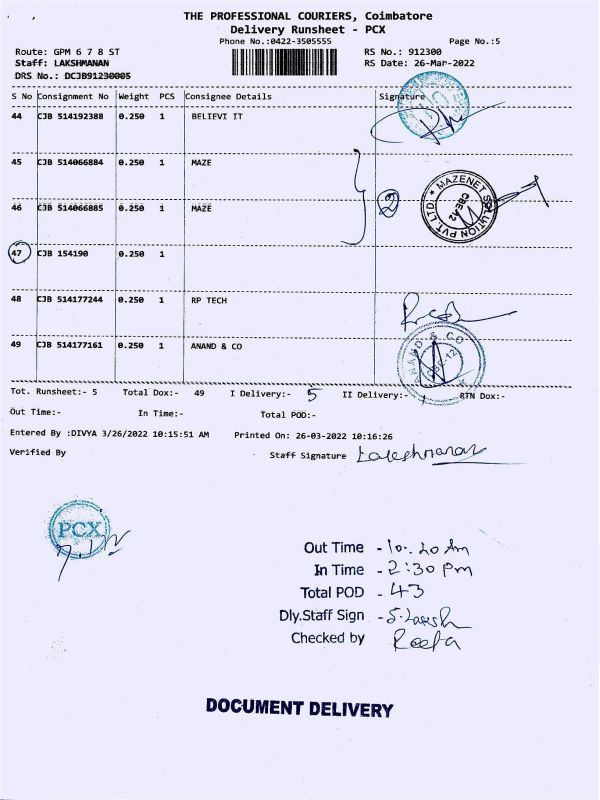 THE PROFESSIONAL COURIERS, Coimbatore
Delivery Runsheet - PCX
Phone No.:0422-3505555 Page No.:5
Route: GPM 6 7 8 ST RS No.: 912300
Staff: LAKSHMANAN RS Date: 26-Mar-2022
DRS No.: DCJB91230005
S No Consignment No Weight PCS Consignee Details Signature
44 CJB 514192388 0.250 1 BELIEVI IT
45 CJB 514066884 0.250 1 MAZE
2 MAZENET SOLUTION PVT.LTD. CBE
46 CJB 514066885 0.250 1 MAZE
47 CJB 154190 0.250 1
48 CJB 514177244 0.250 1 RP TECH
49 CJB 514177161 0.250 1 ANAND & CO
ANAND & CO
Tot. Runsheet:- 5 Total Dox:- 49 I Delivery:- 5 II Delivery:- 1 RTN Dox:-
Out Time:- In Time:- Total POD:-
Entered By :DIVYA 3/26/2022 10:15:51 AM Printed On: 26-03-2022 10:16:26
Verified By Staff Signature Lakshmanan
PCX
Out Time - 10.20 Am
In Time - 2:30 pm
Total POD - 43
Dly.Staff Sign - S.Laksh
Checked by Reeta
DOCUMENT DELIVERY